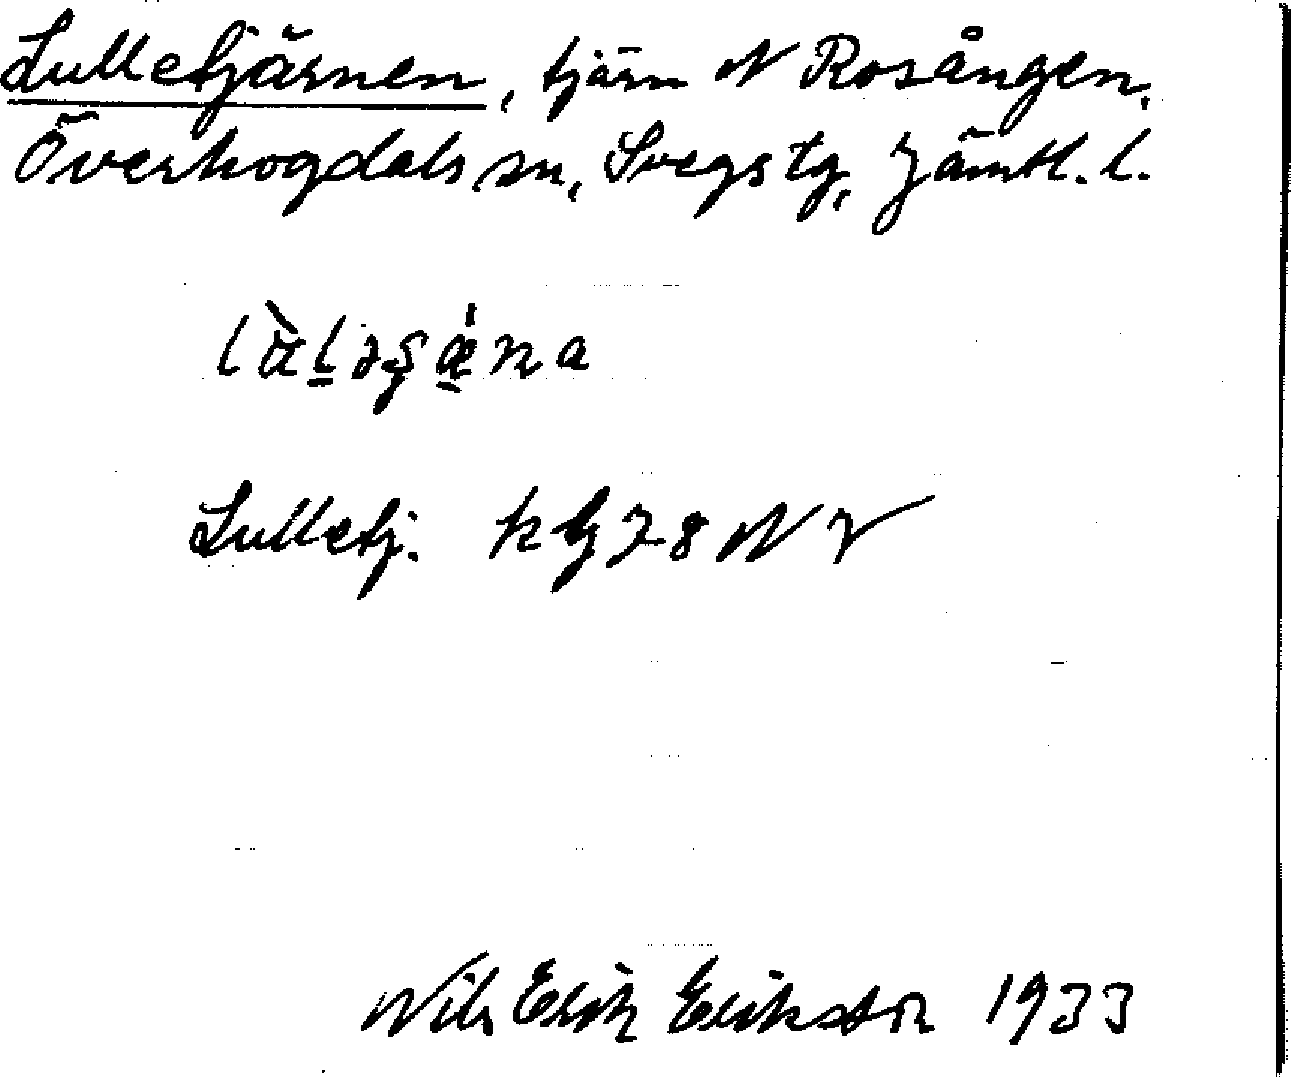 Lulletjärnen, tjärn N Rosången,
Överhogdals sn, Svegs tg, Jämtl. l.
Lulletj. 78 NV
Nils Erik Eriksson 1933